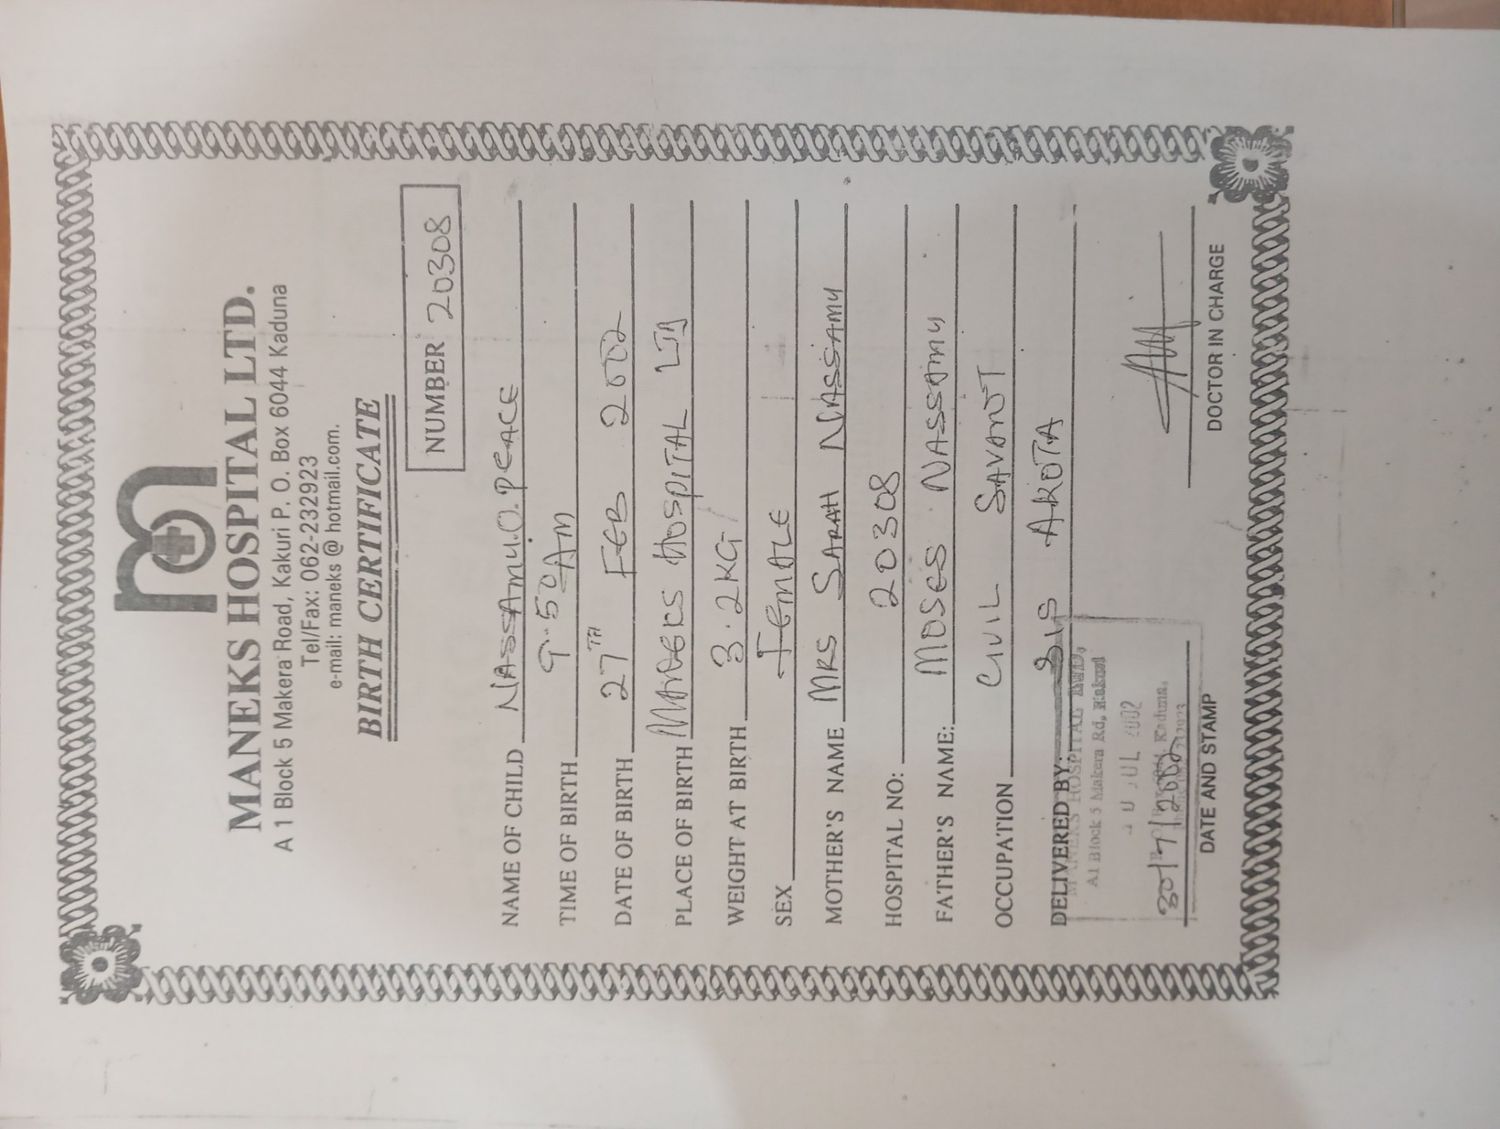 MANEKS HOSPITAL LTD.
A 1 Block 5 Makera Road, Kakuri P. O. Box 6044 Kaduna
Tel/Fax: 062-232923
e-mail: maneks @ hotmail.com.
BIRTH CERTIFICATE
NUMBER 20308
NAME OF CHILD NASSAMU.O.PEACE
TIME OF BIRTH 9.50 AM
DATE OF BIRTH 27TH FEB 2002
PLACE OF BIRTH MANEKS HOSPITAL LTD
WEIGHT AT BIRTH 3.2KG
SEX FEMALE
MOTHER'S NAME MRS SARAH NASSAMU
HOSPITAL NO: 20308
FATHER'S NAME: MOSES NASSAMU
OCCUPATION CIVIL SAVANT
DELIVERED BY: SIS AKOTA
MANEKS HOSPITAL
A1 Block 5 Makera Rd, Kakuri
JUL 2002
Kaduna.
30/7/2002
DATE AND STAMP
DOCTOR IN CHARGE